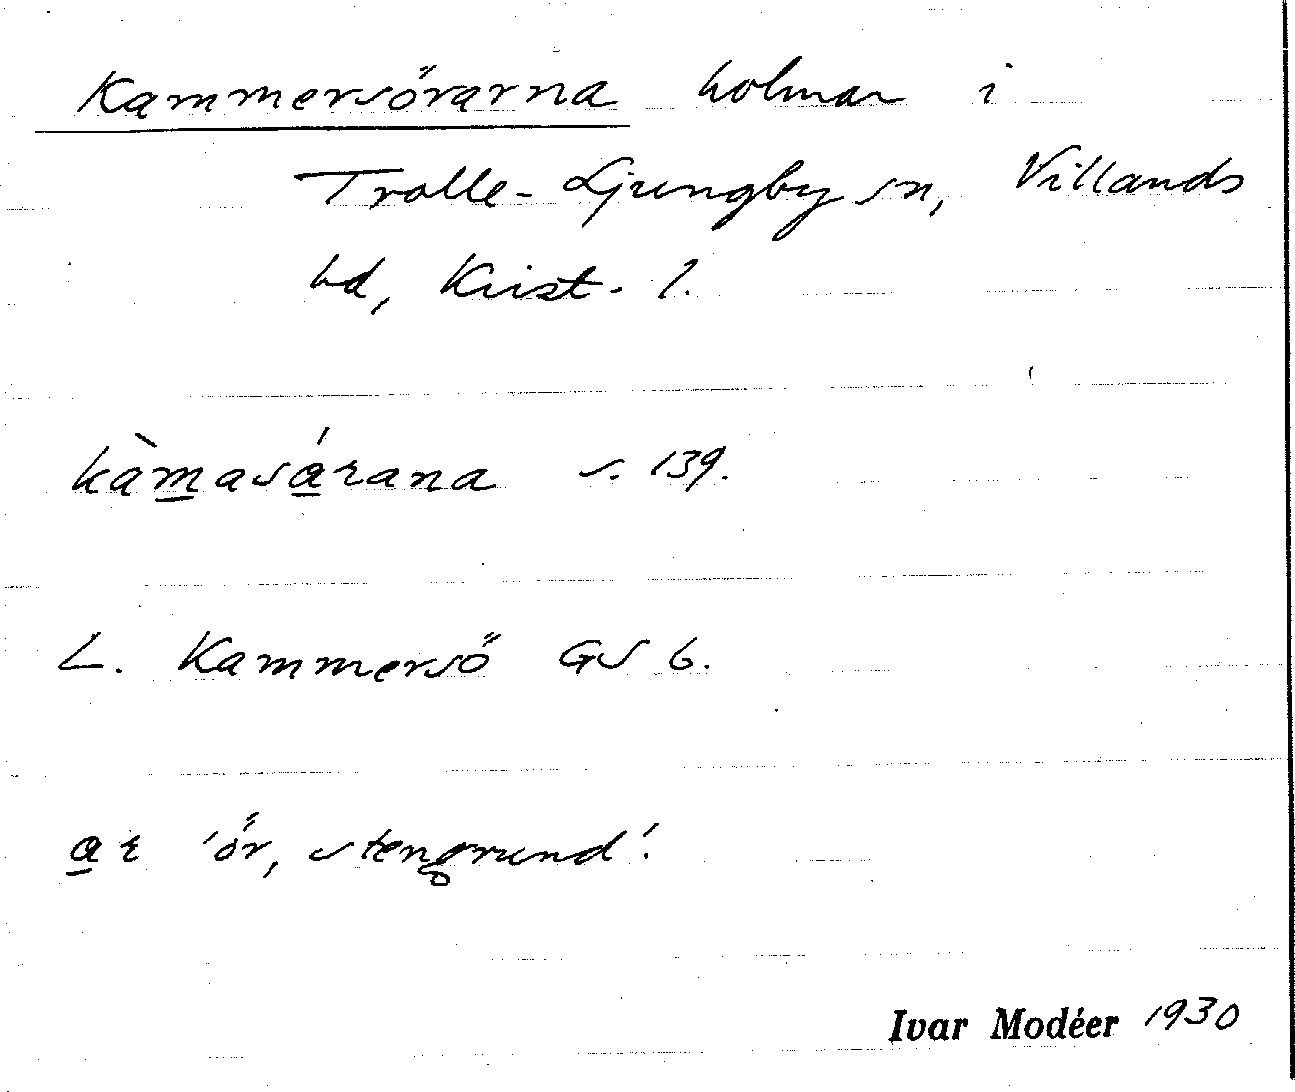 Kammersörarna holmar i
Trolle-Ljungby sn, Villands
hd, Krist. l.
kàmasárana s. 139.
L. Kammersö GS 6.
ar 'ör, stengrund'.
Ivar Modéer 1930